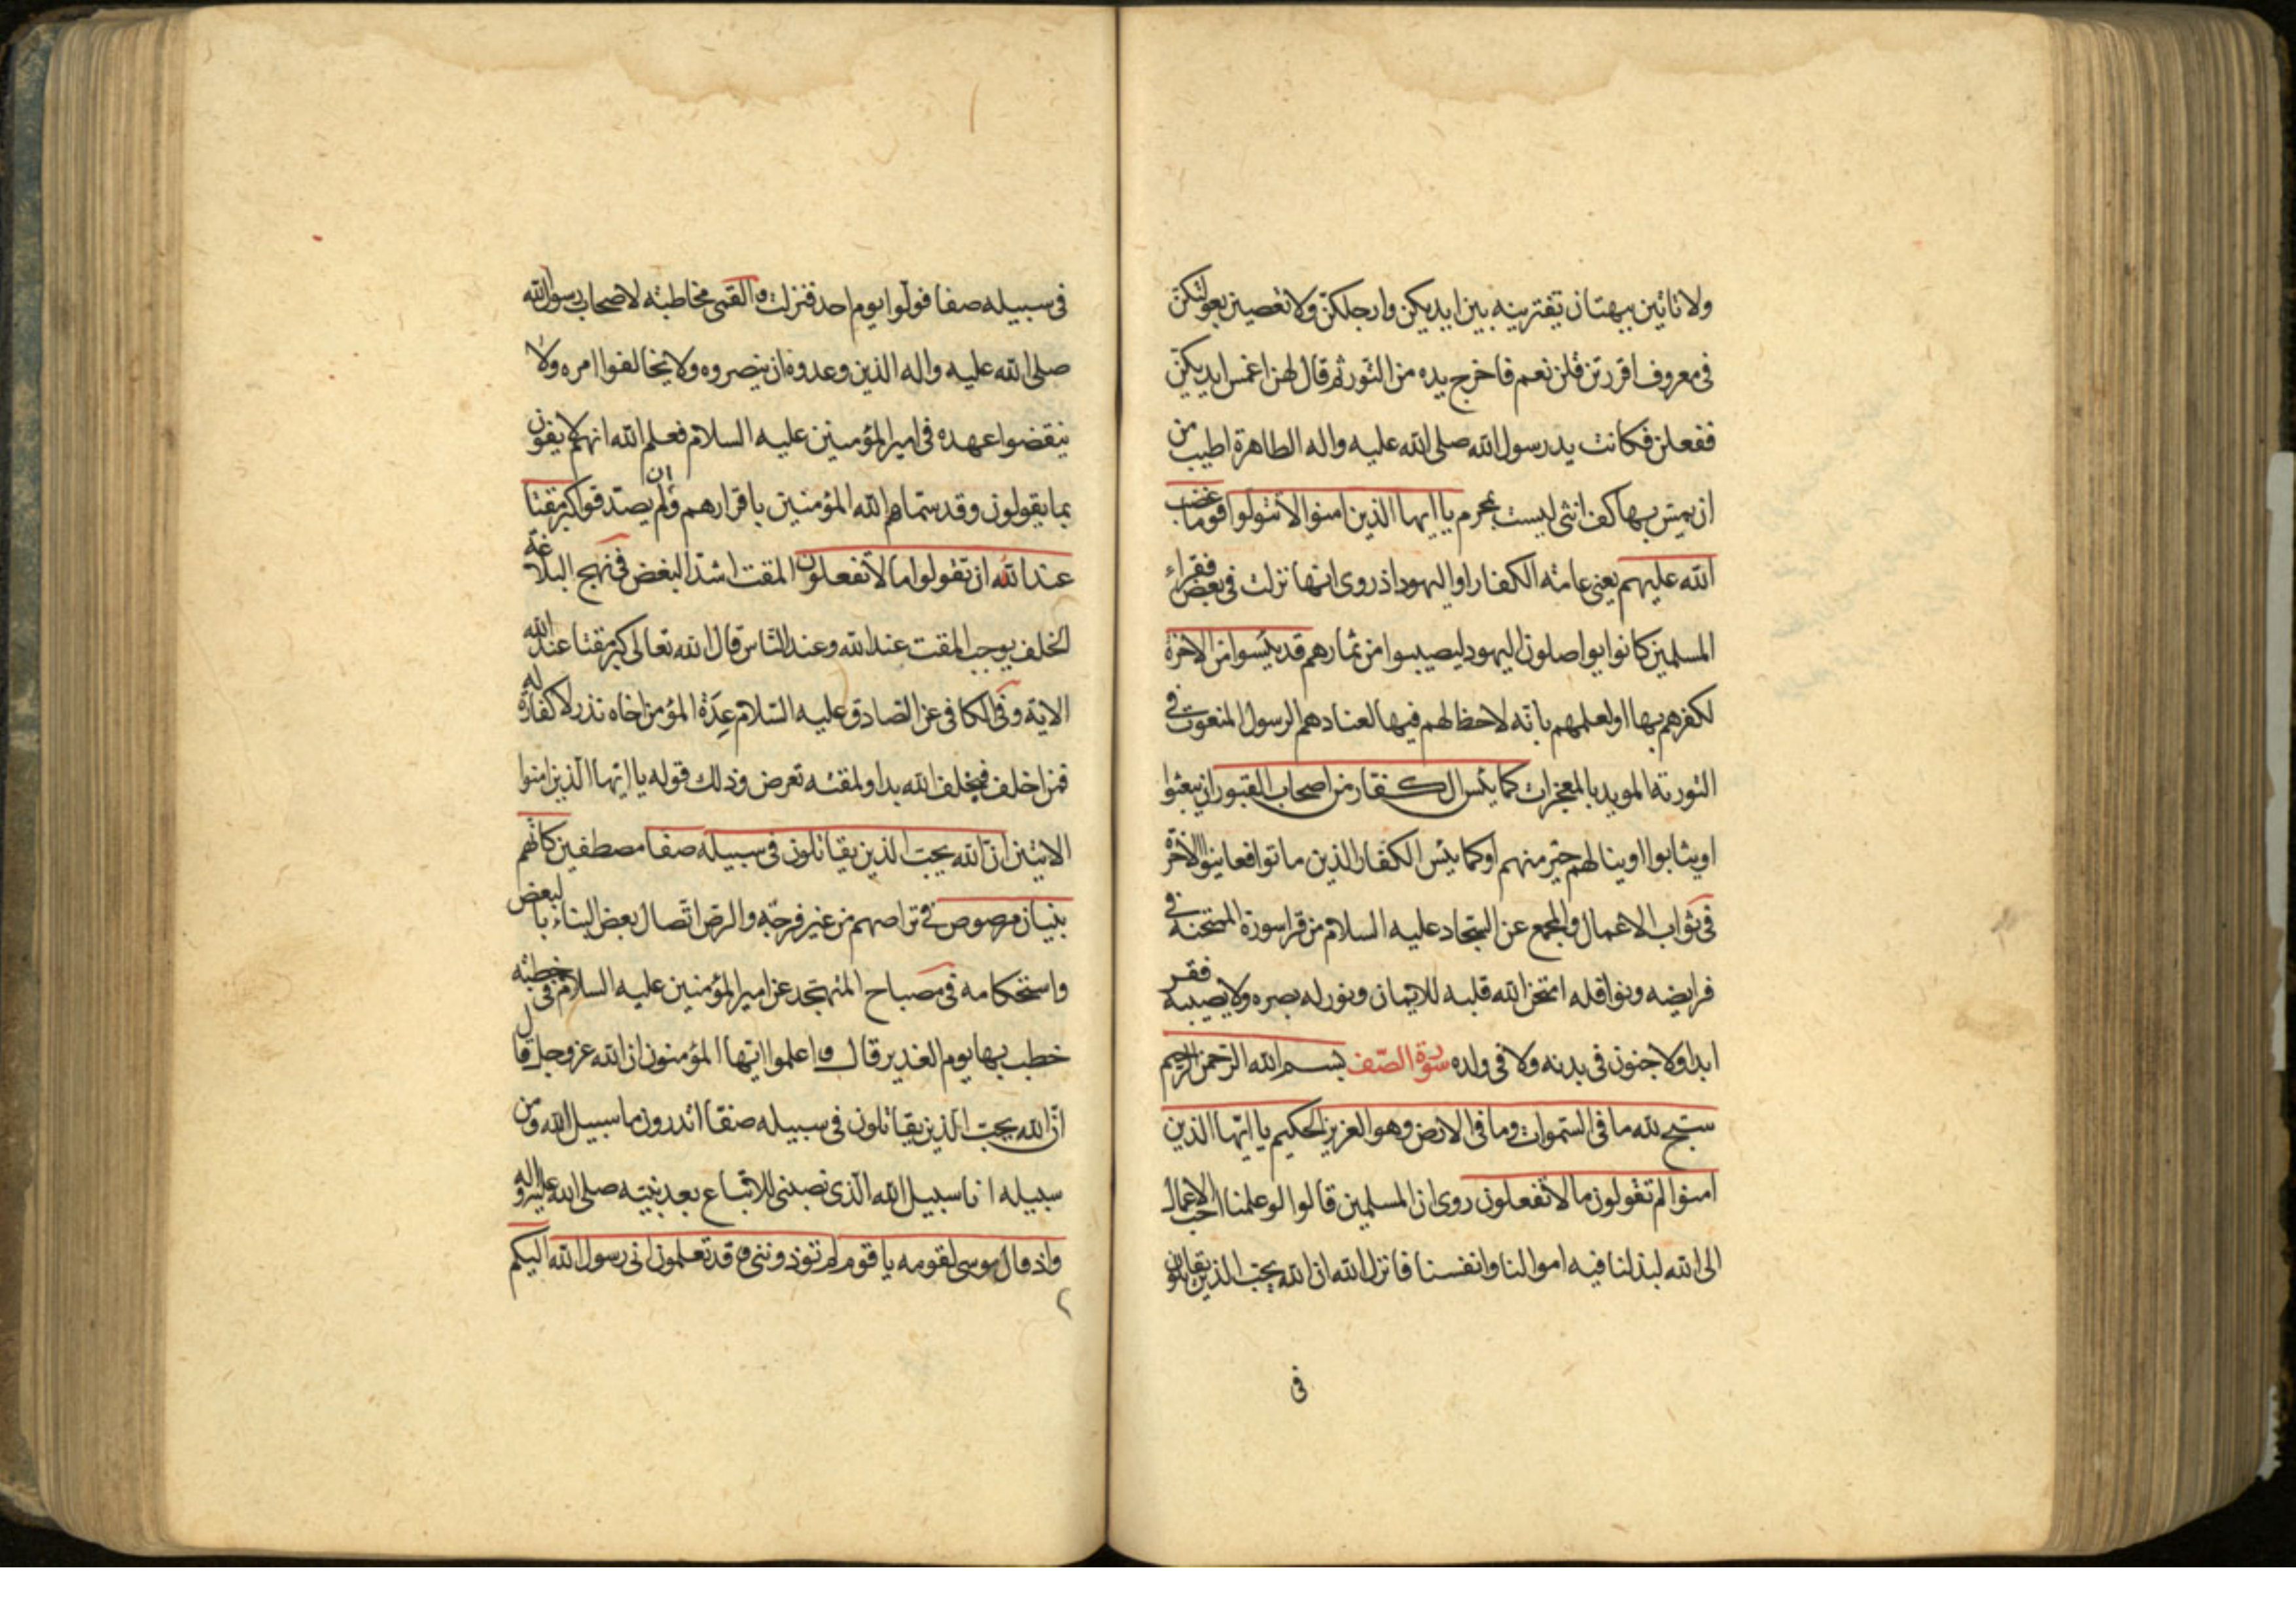 ولا تاتين ببهتان تفترينه بين ايديكن وارجلكنّ ولا تعصين بعولتكنّ
فى معروف اقررتن قلن نعم فاخرج يده من التور ثم قال لهن اغمس ايديكنّ
ففعلن فكانت يد رسول الله صلى الله عليه واله الطاهرة اطيب من
ان يمسّ بها كف انثى ليست بمحرم يا ايها الذين امنوا لا تتولوا قوما غضب
الله عليهم يعنى عامة الكفار او اليهود اذ روى انها نزلت فى بعض فقراء
المسلمين كانوا يواصلون اليهود ليصيبوا من ثمارهم قد يئسوا من الاخرة
لكفرهم بها او لعلمهم بانه لاحظ لهم فيها لعنادهم الرسول المنعوت فى
التورية المويد بالمعجزات كما يئس الكفار من اصحاب القبور ان يبعثوا
او يثابوا او ينالهم خير منهم او كما يئس الكفار الذين ماتوا فعاينوا الاخرة
فى ثواب الاعمال والمجمع عن السّجاد عليه السلام من قرا سورة الممتحنة فى
فرايضه ونوافله امتحن الله قلبه للايمان ونور له بصره ولا يصيبه فقر
ابدا ولا جنون فى بدنه ولا فى ولده سورة الصّف بسم الله الرّحمن الرّحيم
سبّح لله ما فى السّموات وما فى الارض وهو العزيز الحكيم يا ايّها الذين
امنوا لم تقولون ما لا تفعلون روى ان المسلمين قالوا لو علمنا احب الاعمال
الى الله لبذلنا فيه اموالنا وانفسنا فانزل الله ان الله يحبّ الذين يقاتلون
فى
فى سبيله صفا فولوا يوم احد فنزلت و القمى مخاطبة لاصحاب رسول الله
صلى الله عليه واله الذين وعدوه ان ينصروه ولا يخالفوا امره ولا
ينقضوا عهده فى امير المؤمنين عليه السلام فعلم الله انهم لا يفون
بما يقولون وقد سمّاهم الله المؤمنين باقرارهم وان لم يصدقوا كبر مقتا
عند الله ان تقولوا ما لا تفعلون المقت اشدّ البغض فى نهج البلاغة
الخلف يوجب المقت عند الله وعند النّاس قال الله تعالى كبر مقتا عند الله
الاية وفى الكافى عن الصّادق عليه السّلام عِدَة المؤمن اخاه نذر لا كفارة له
فمن اخلف فبخلف الله بدا ولمقته تعرض وذلك قوله يا ايّها الّذين امنوا
الايتين انّ الله يحبّ الذين يقاتلون فى سبيله صفا مصطفين كانّهم
بنيان مرصوص فى تراصهم من غير فرجة والرصّ اتّصال بعض البناء بالبعض
واستحكامه فى مصباح المتهجّد عن امير المؤمنين عليه السلام فى خطبة
خطب بها يوم الغدير قال و اعلموا ايّها المؤمنون ان الله عز وجل قال
انّ الله يحبّ الّذين يقاتلون فى سبيله صفّا اتدرون ما سبيل الله ومن
سبيله انا سبيل الله الّذى نصبنى للاتّباع بعد نبيّه صلى الله عليه واله
واذ قال موسى لقومه يا قوم لم تؤذوننى و قد تعلمون انى رسول الله اليكم